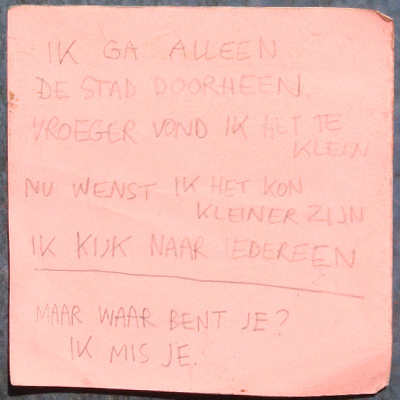 IK GA ALLEEN
DE STAD DOORHEEN.
VROEGER VOND IK HET TE
KLEIN
NU WENST IK HET KON
KLEINER ZIJN
IK KIJK NAAR IEDEREEN
MAAR WAAR BENT JE?
IK MIS JE.